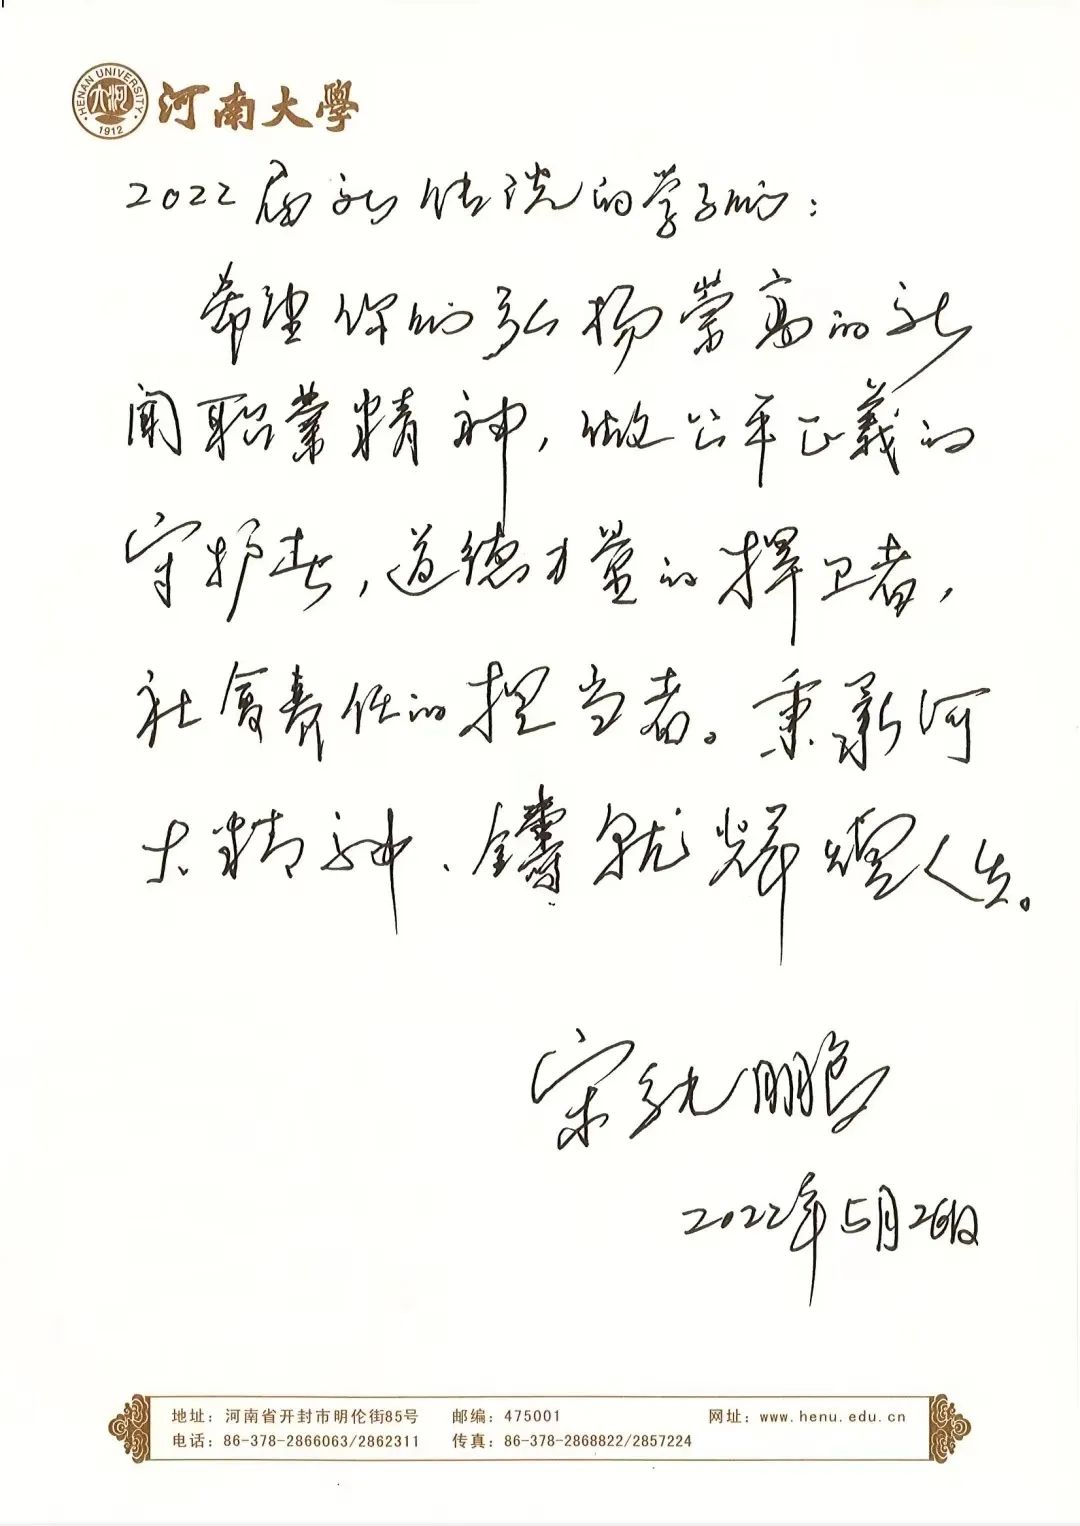 HENAN UNIVERSITY
大河
1912
河南大學
2022届新传院的学子们:
希望你们弘扬崇高的新
闻职业精神,做公平正義的
守护者,道德力量的捍卫者,
社會责任的担当者。秉承河
大精神、鑄就辉煌人生。
宋 鹏
2022年5月26日
地址:河南省开封市明伦街85号 邮编:475001 网址:www.henu.edu.cn
电话:86-378-2866063/2862311 传真:86-378-2868822/2857224